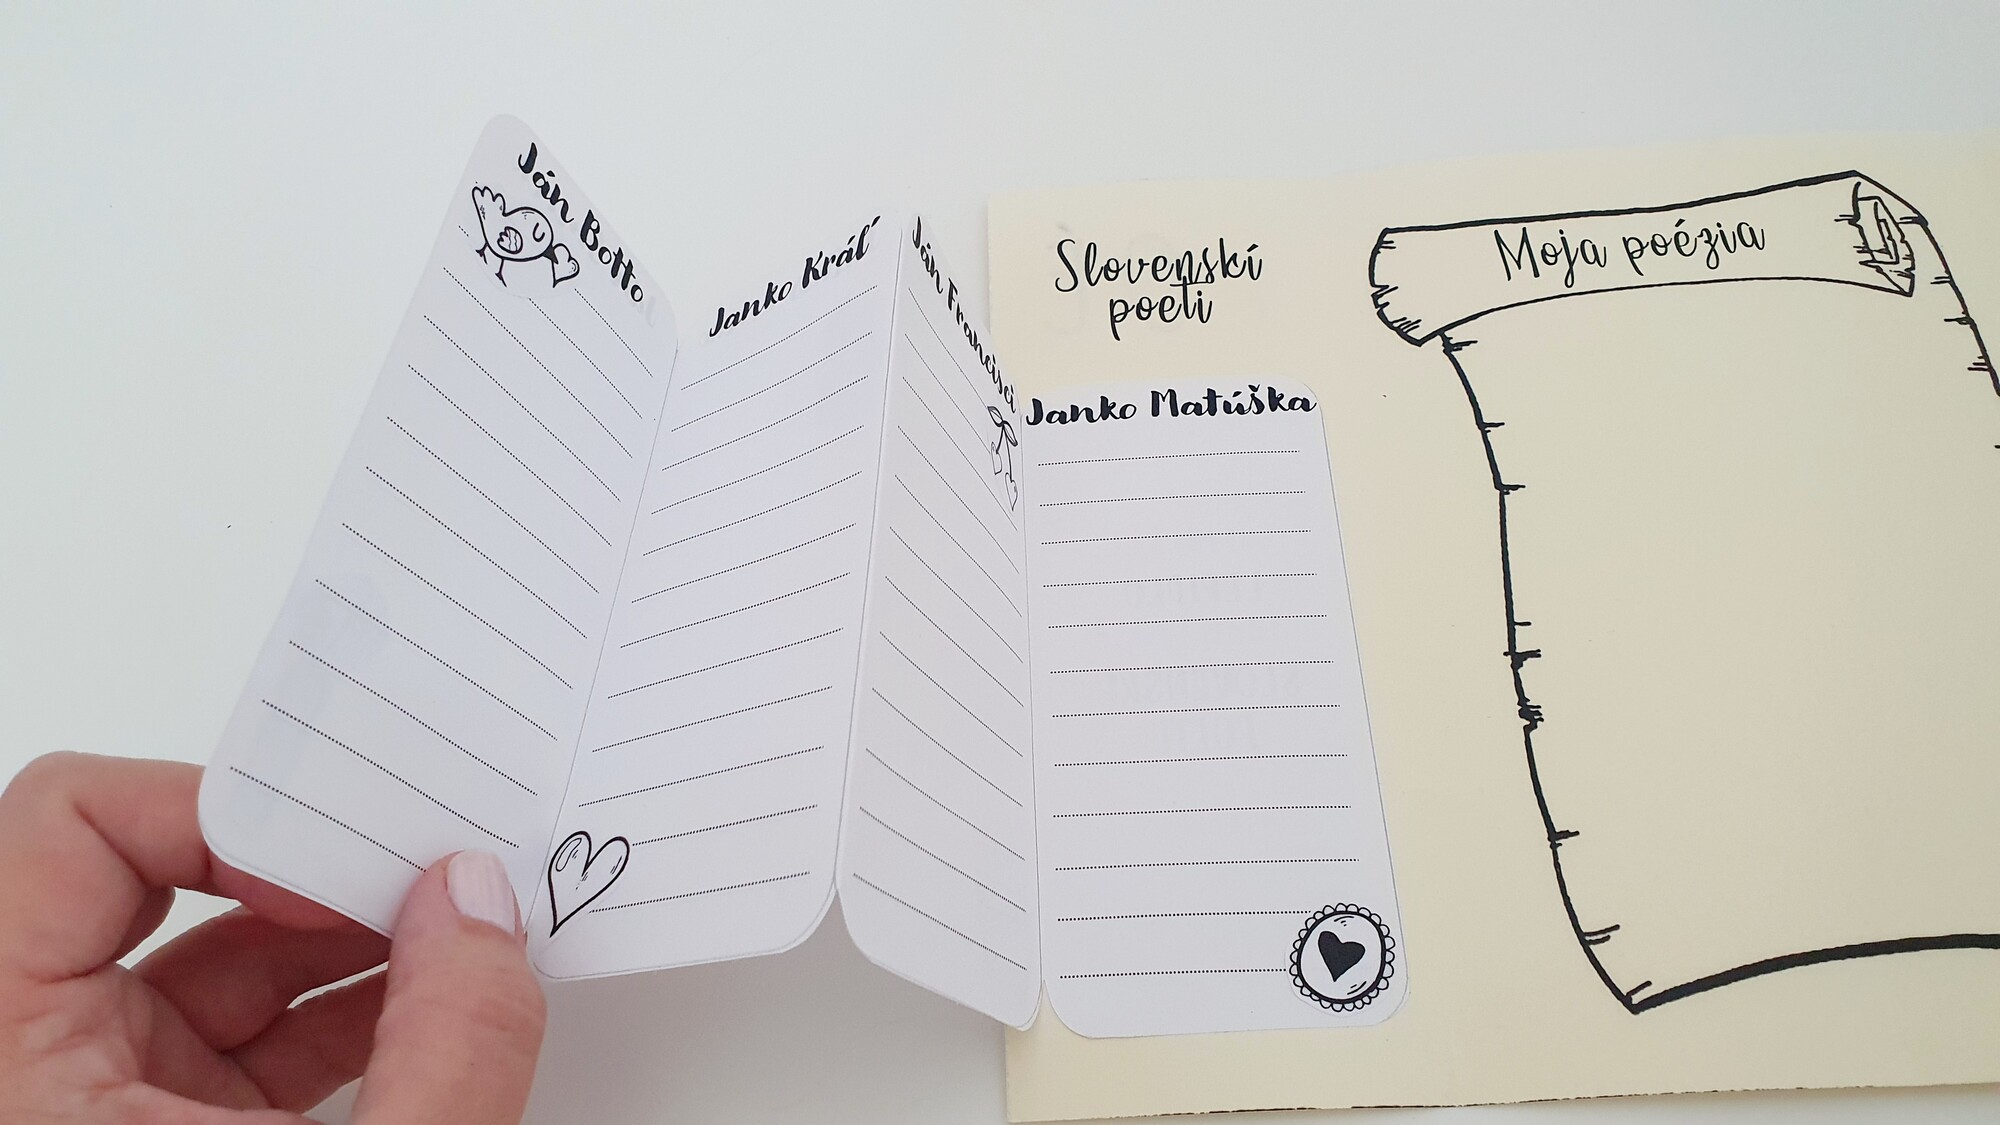 Ján Botto
Janko Kráľ
Ján Francisci
Slovenskí
poeti
Janko Matúška
Moja poézia